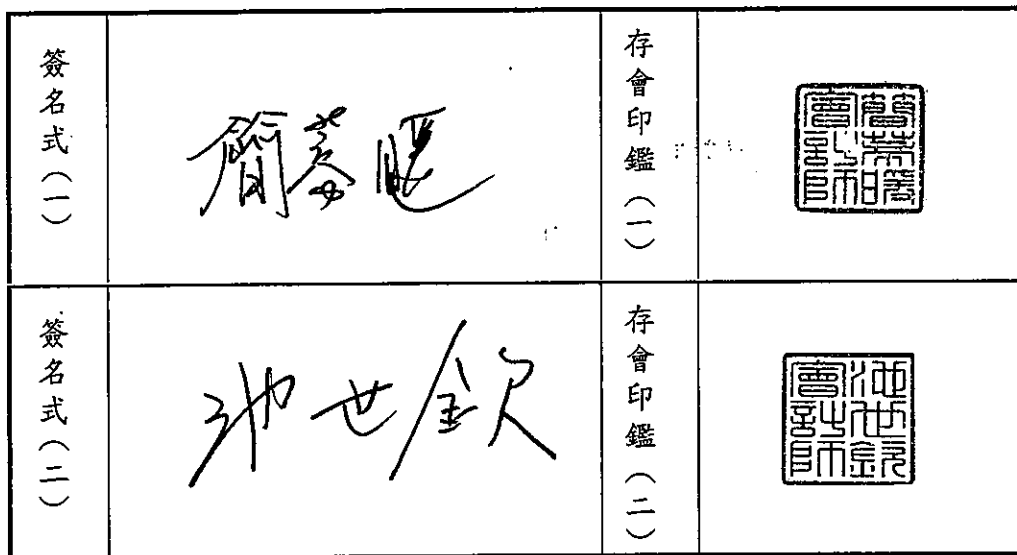 簽名式（一）
簡蒂暖
存會印鑑（一）
簡蒂暖
會計師
簽名式（二）
池世欽
存會印鑑（二）
池世欽
會計師